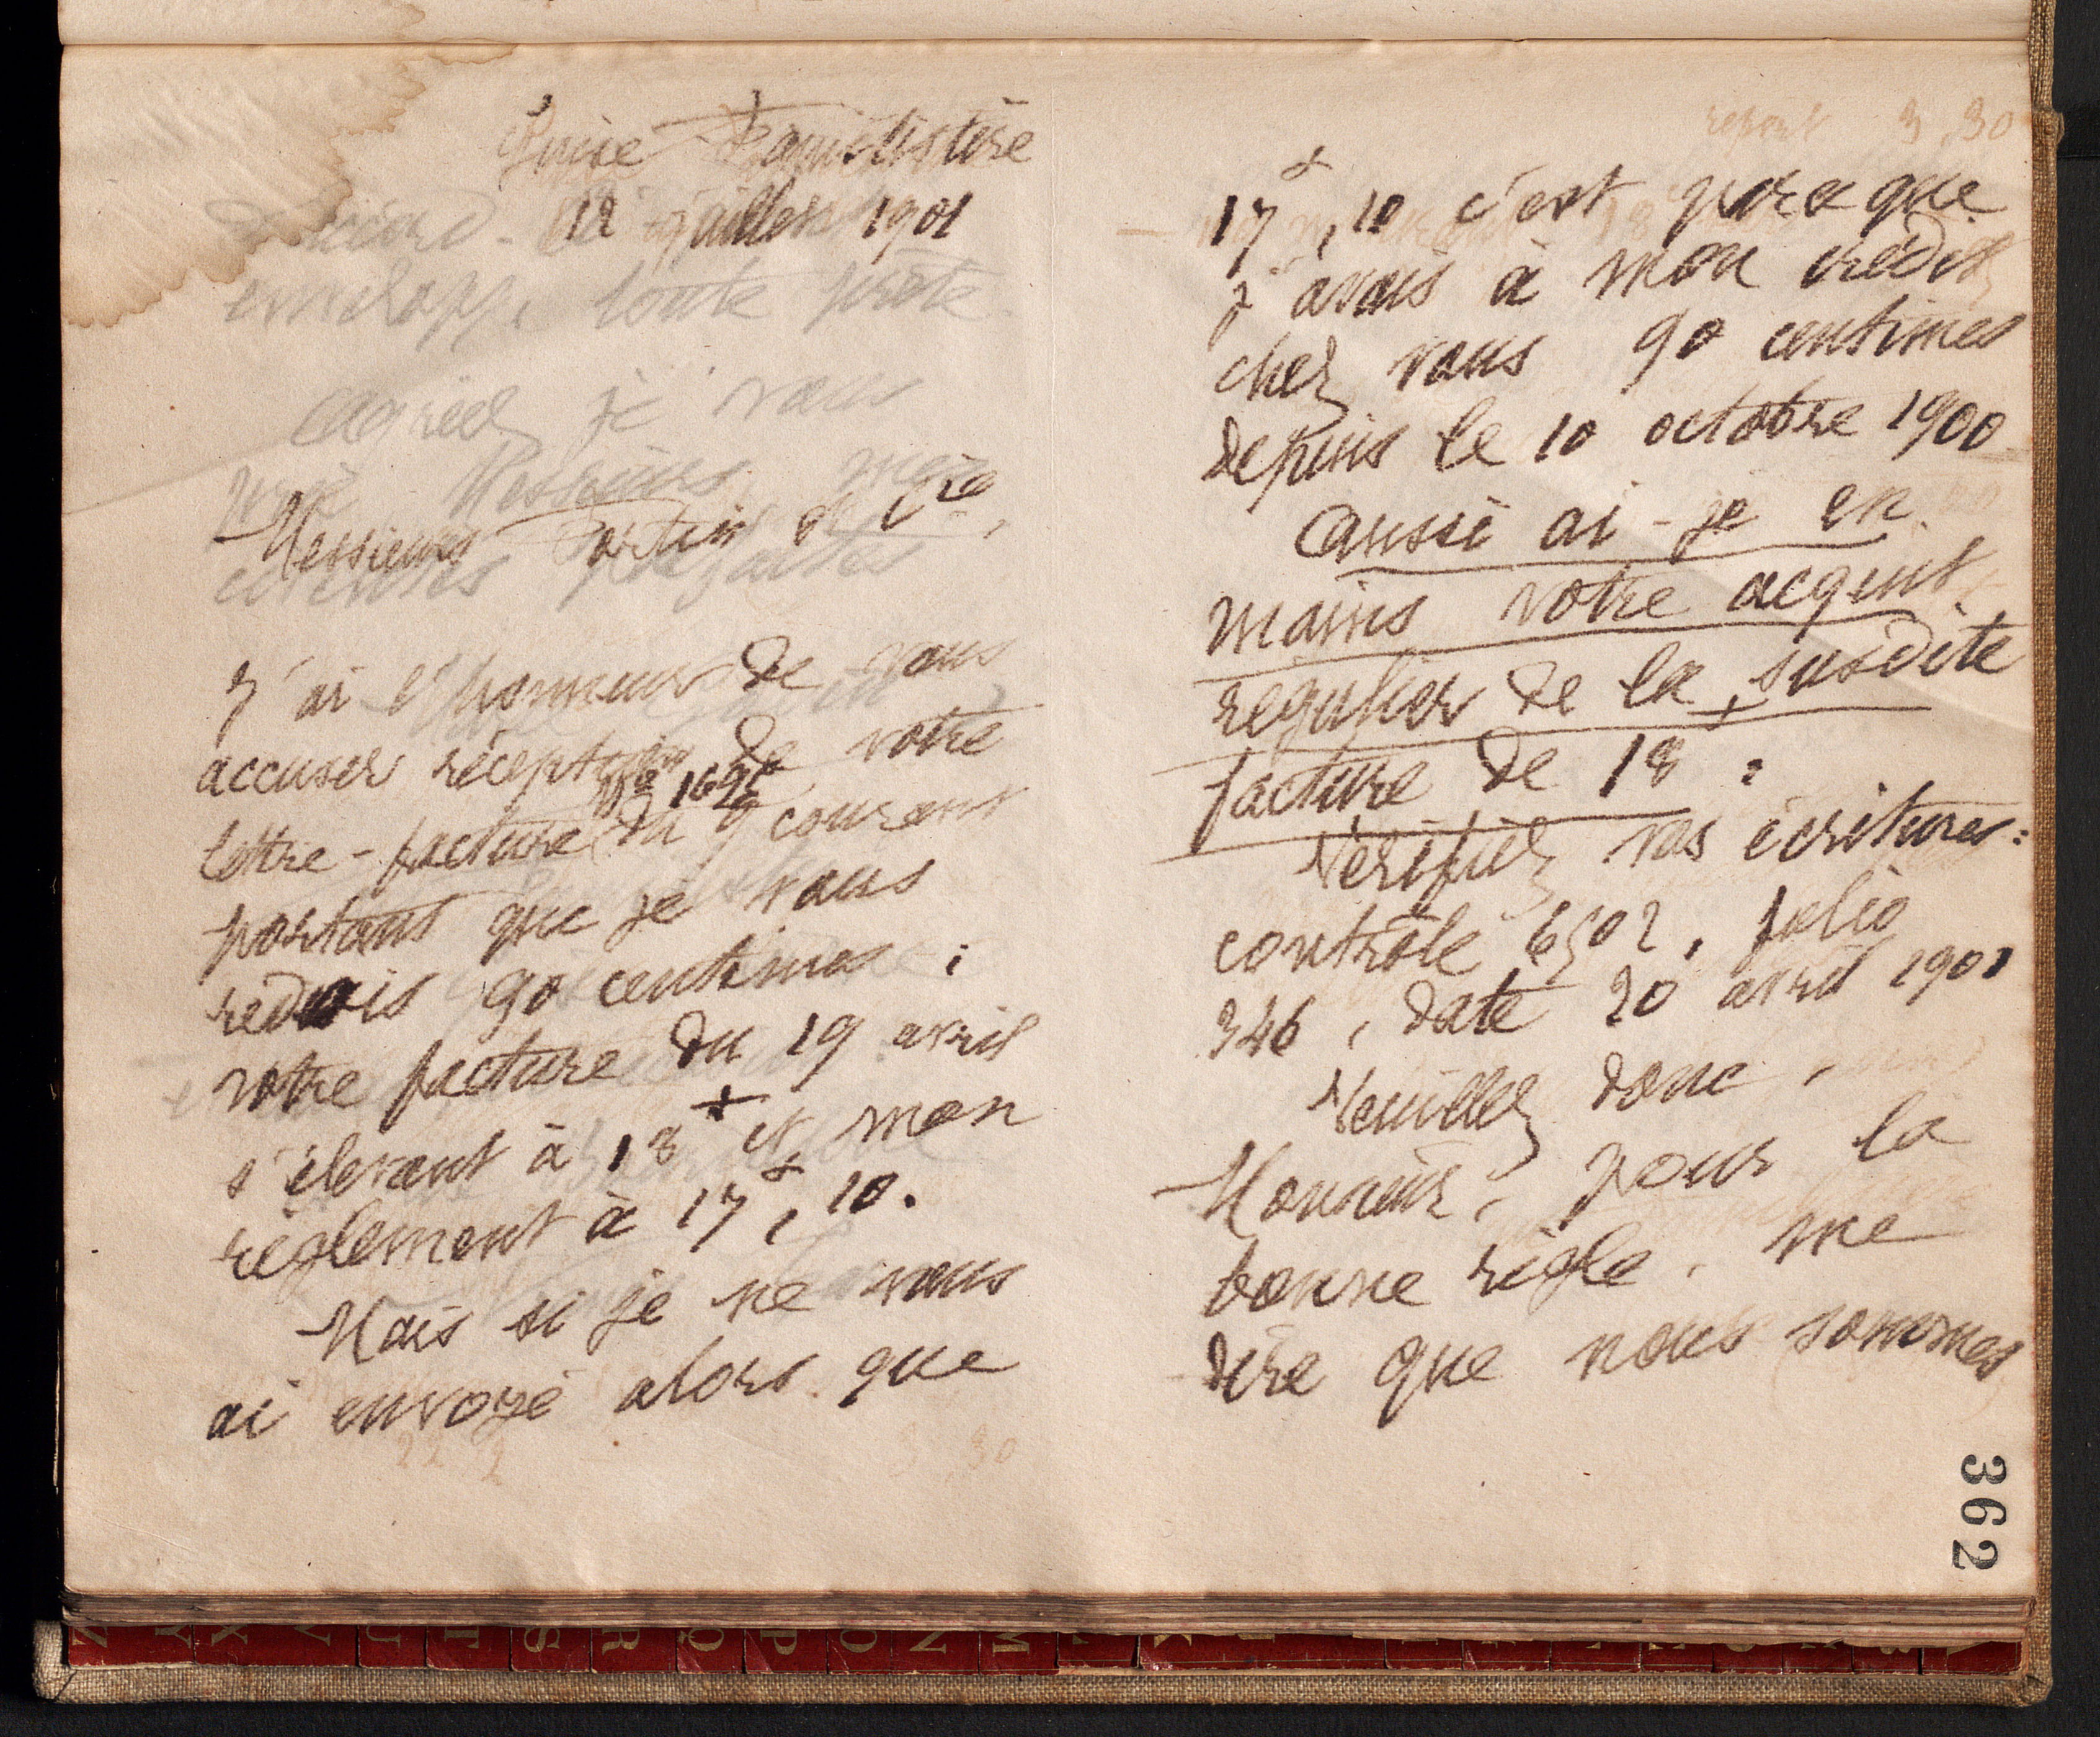 Guise Familistère
12 juillet 1901
d'accord
envelopp. toute prête
Agréez je vous
prie Messieurs mes
Messieurs Fortin et Cie,
civilités parfaites
J'ai l'honneur de vous
accuser réception de votre
No
lettre-facture du 9 courant
portant que je vous
redois 90 centimes :
votre facture du 19 avril
s'élevant à 18f et mon
règlement à 17f, 10.
Mais si je ne vous
ai envoyé alors que
report 3,30
17f, 10 c'est parce que
j'avais à mon crédit
chez vous 90 centimes
depuis le 10 octobre 1900
Aussi ai-je en
mains votre acquit
régulier de la susdite
facture de 18f :
Vérifiez vos écritures :
contrôle 6502, folio
346, date 20 avril 1901
Veuillez donc,
Monsieur, pour la
bonne règle, me
dire que nous sommes
362
Z Y X V U T S R Q P O N M